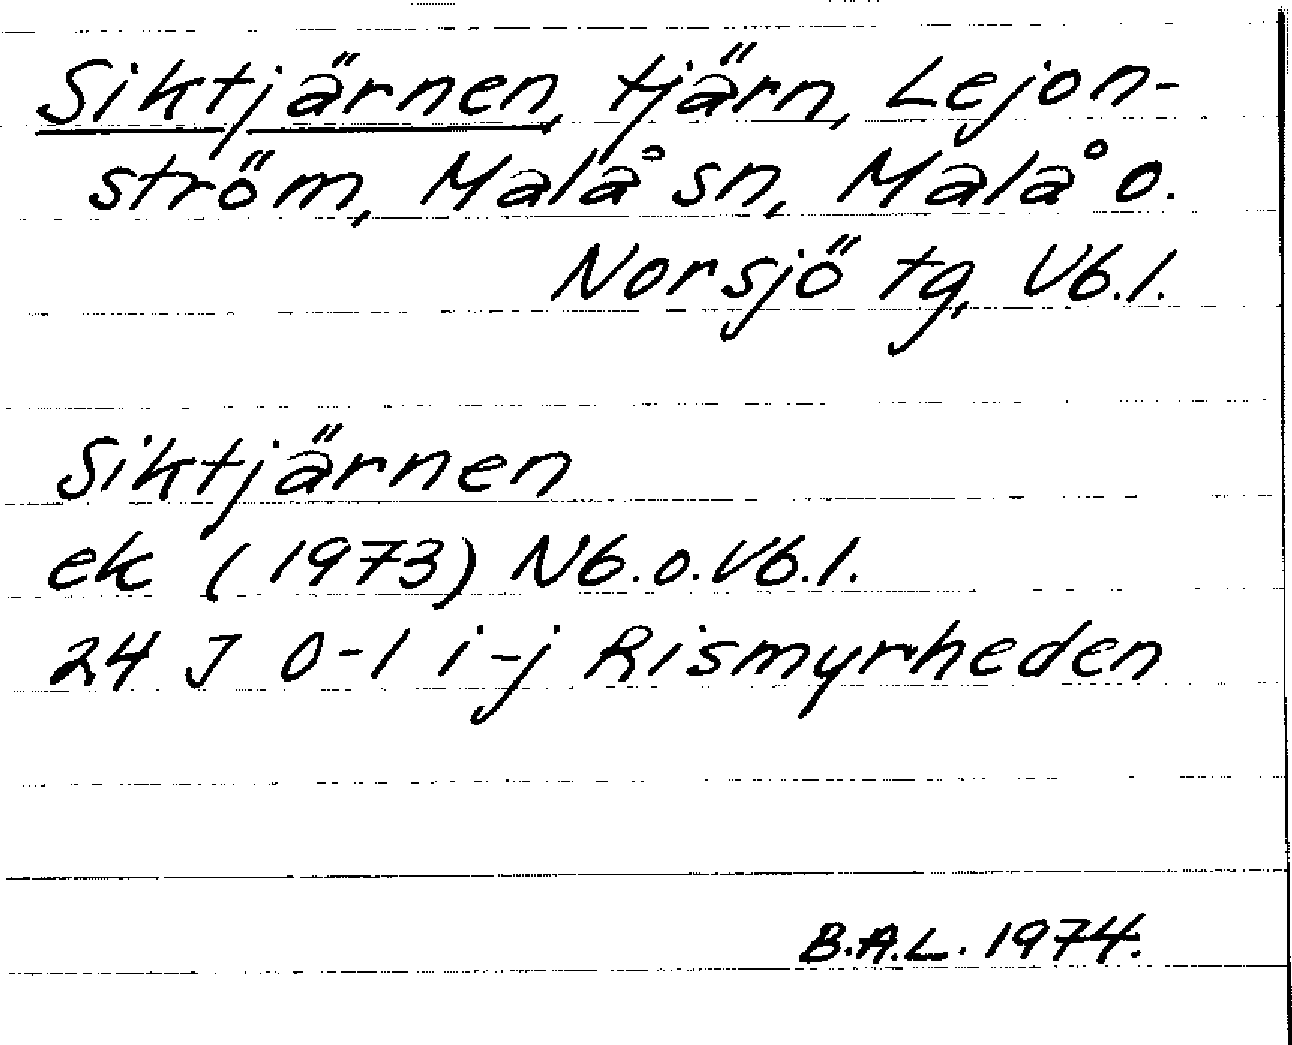 Siktjärnen, tjärn, Lejon-
ström, Malå sn, Malå o.
Norsjö tg, Vb.l.
Siktjärnen
ek (1973) Nb.o.Vb.l.
24 J 0-1 i-j Rismyrheden
B.A.L. 1974.